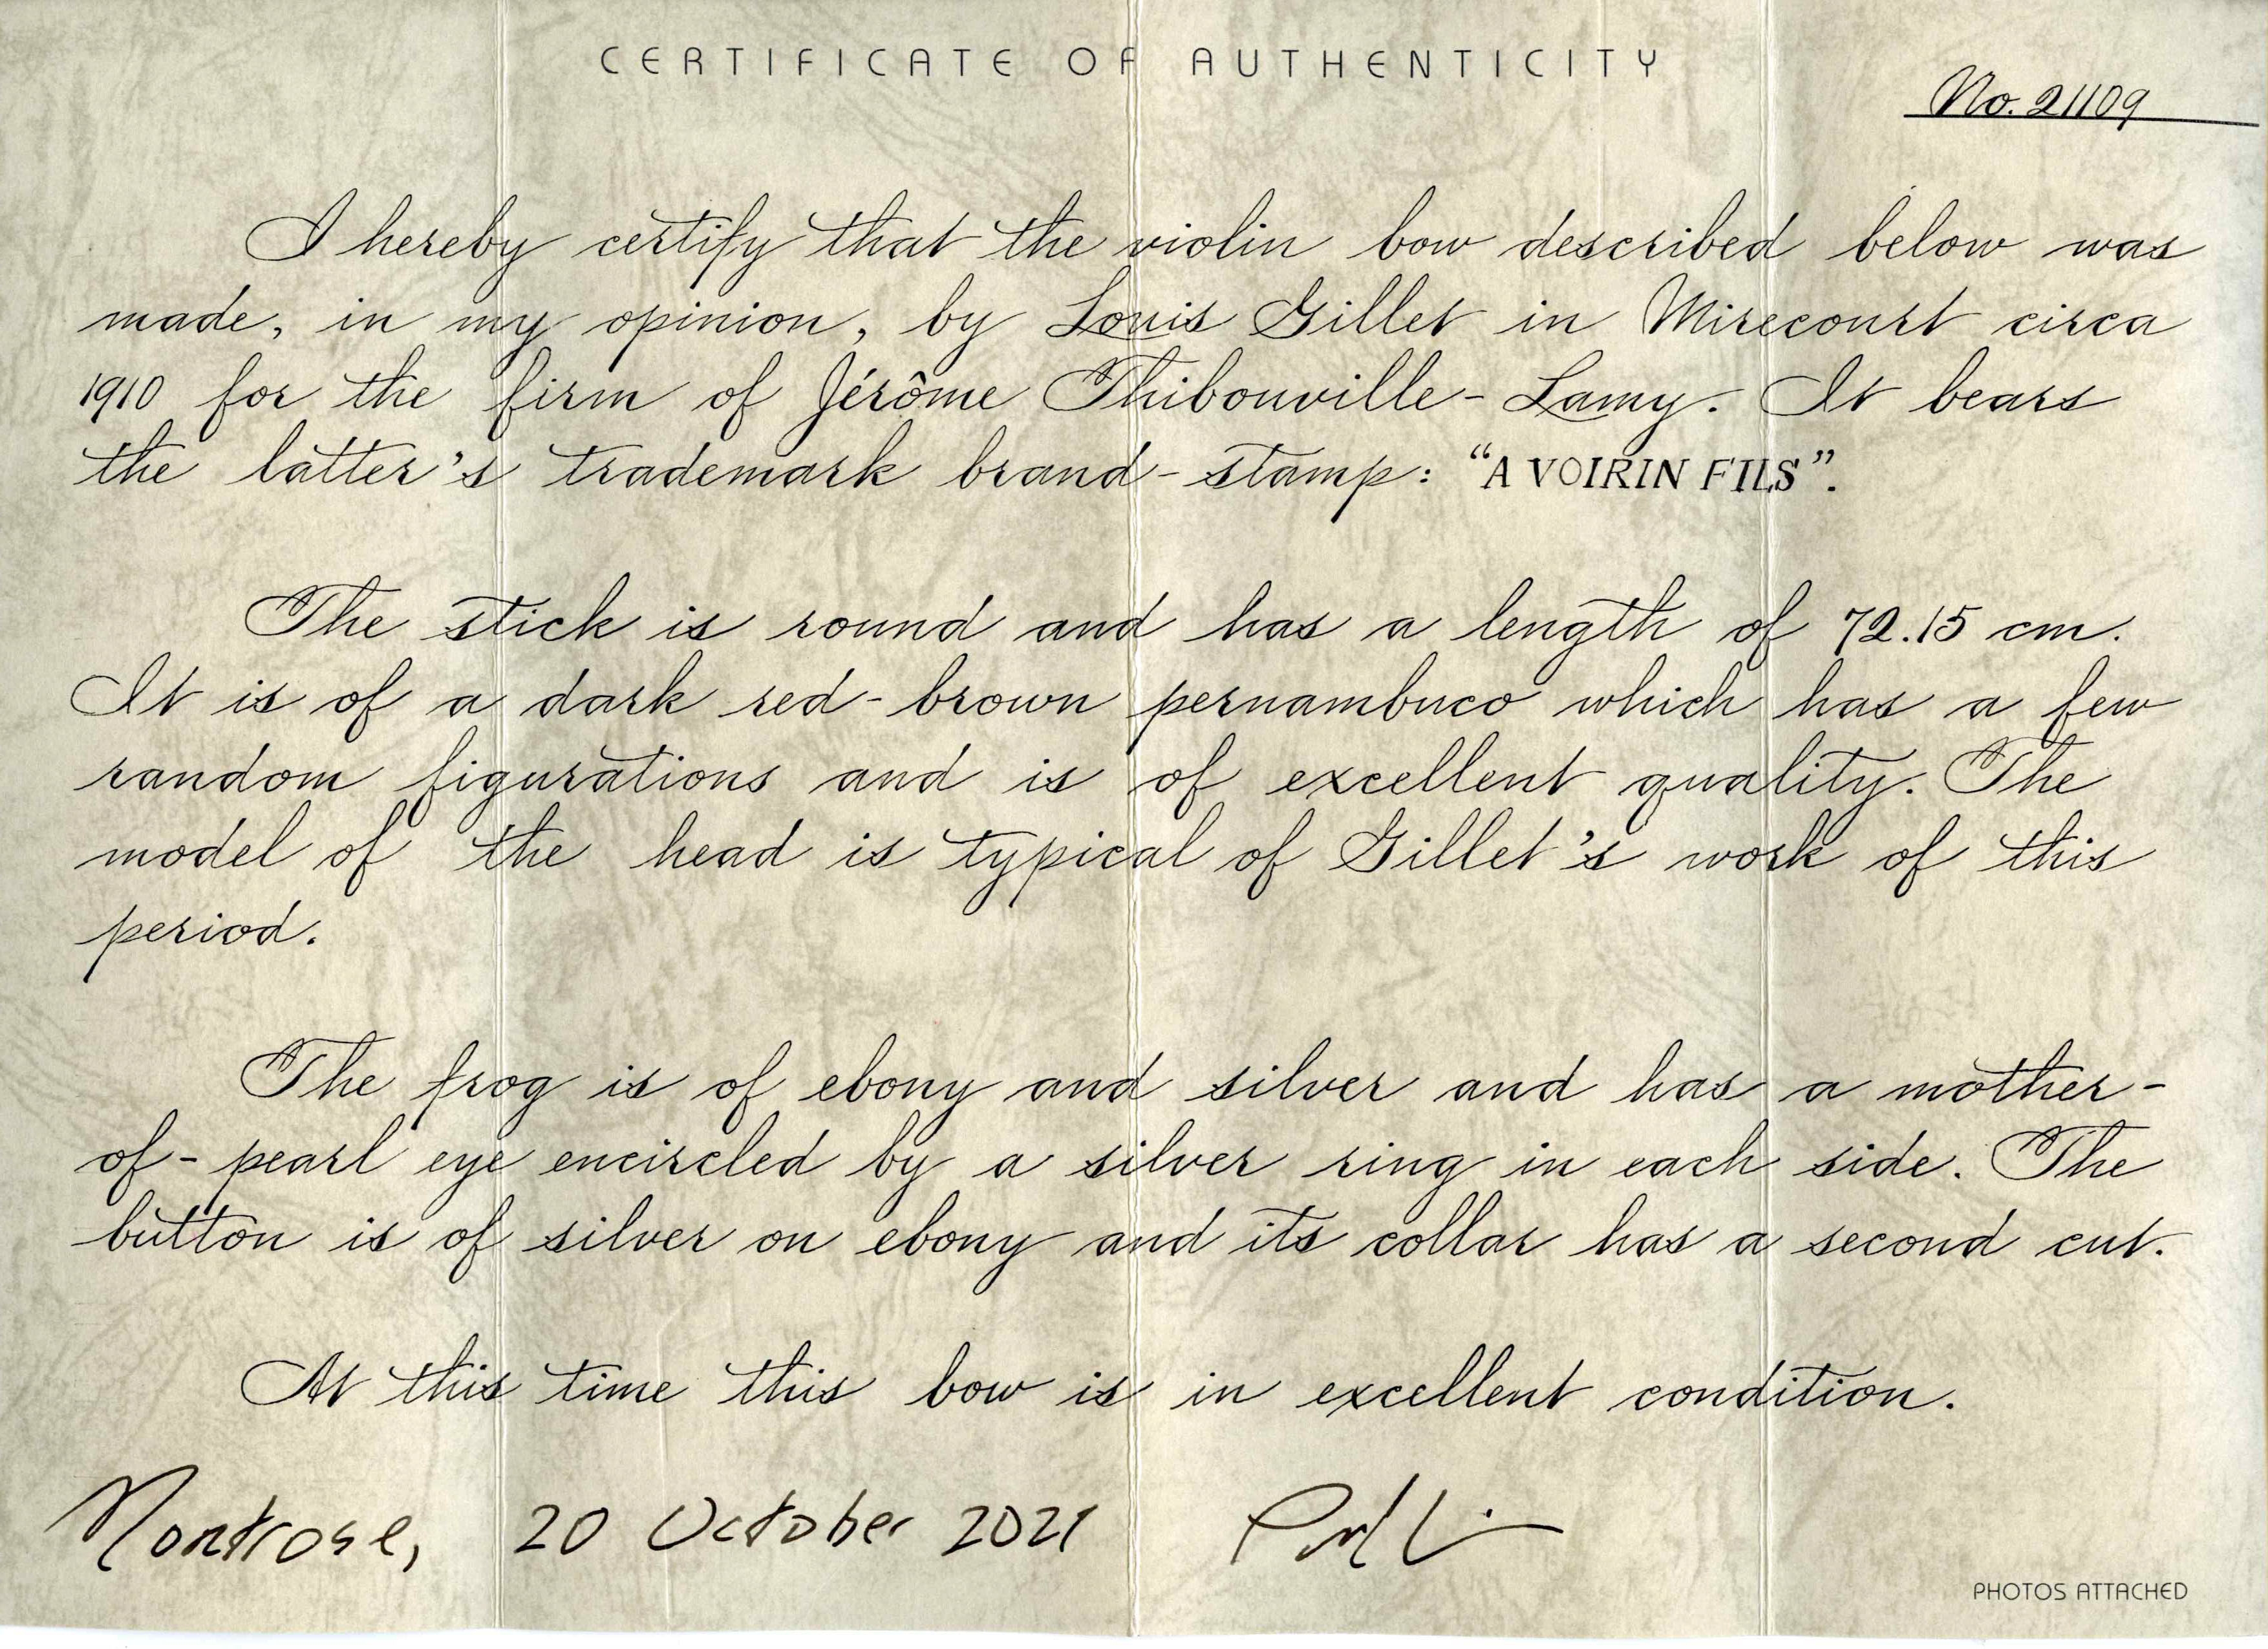 CERTIFICATE OF AUTHENTICITY
No. 21109
I hereby certify that the violin bow described below was
made, in my opinion, by Louis Gillet in Mirecourt circa
1910 for the firm of Jérôme Thibouville-Lamy. It bears
the latter's trademark brand-stamp: "A VOIRIN FILS".
The stick is round and has a length of 72.15 cm.
It is of a dark red-brown pernambuco which has a few
random figurations and is of excellent quality. The
model of the head is typical of Gillet's work of this
period.
The frog is of ebony and silver and has a mother-
of-pearl eye encircled by a silver ring in each side. The
button is of silver on ebony and its collar has a second cut.
At this time this bow is in excellent condition.
Montrose, 20 October 2021
PHOTOS ATTACHED